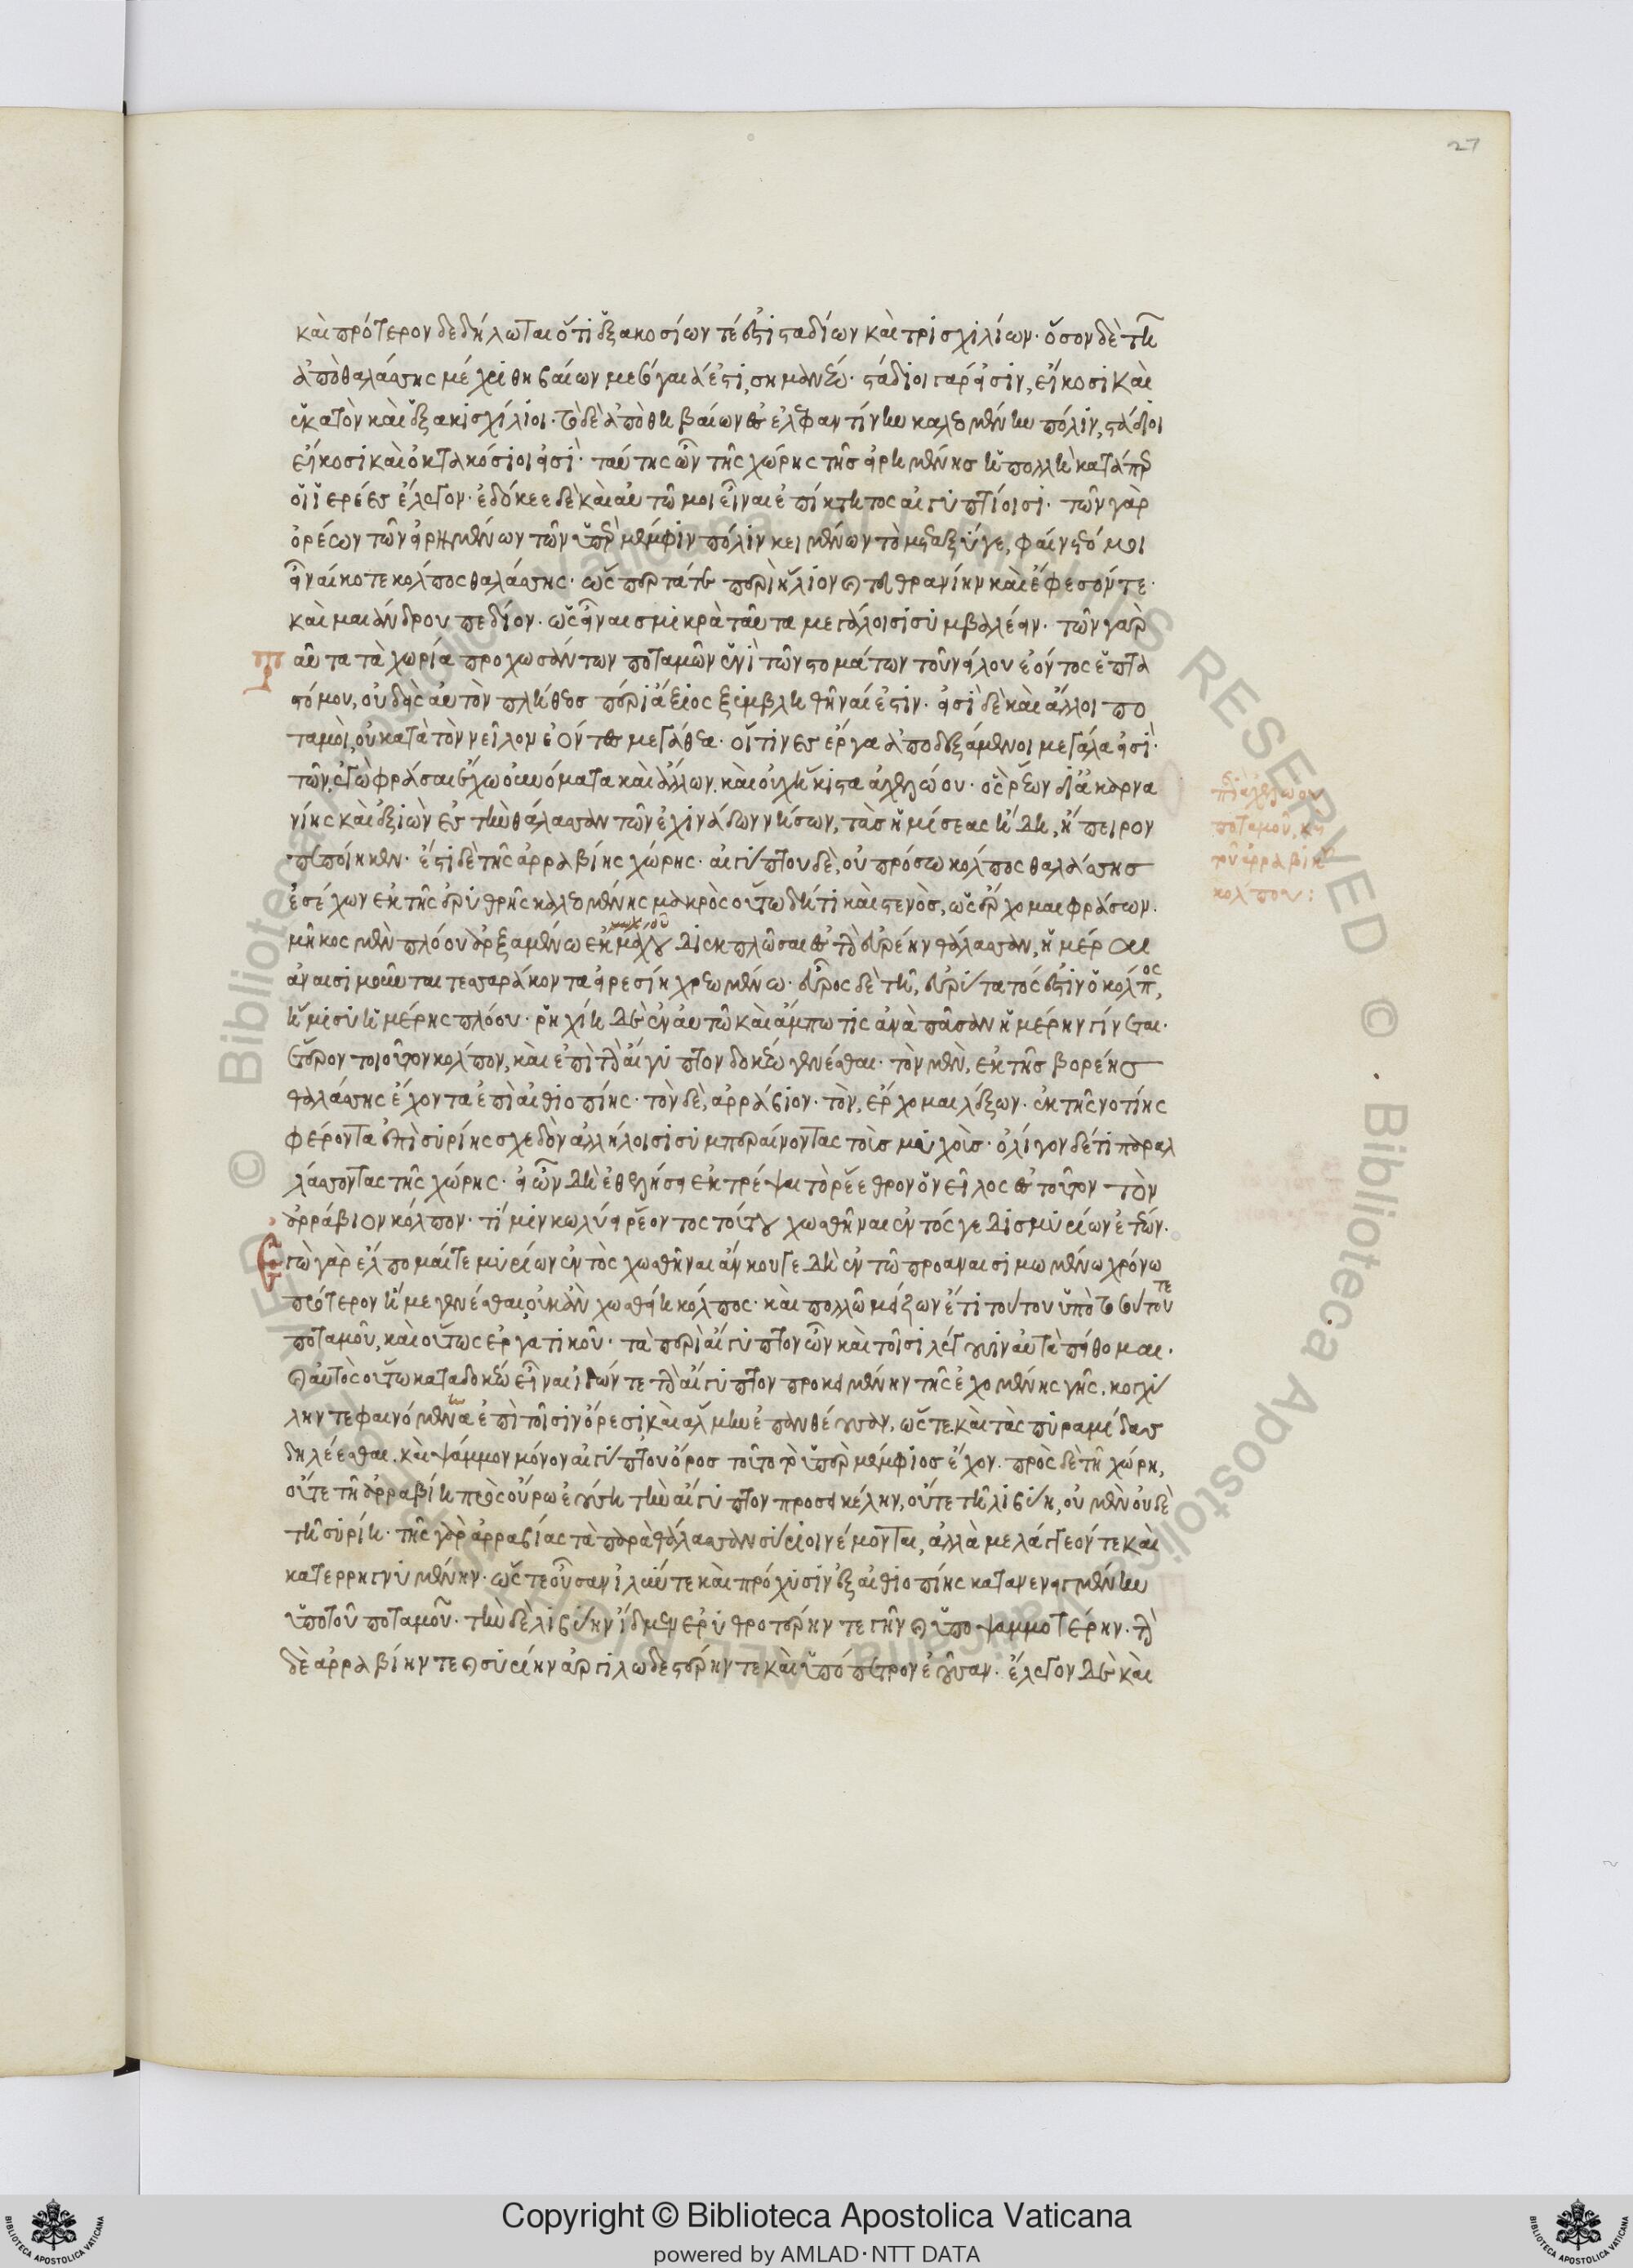 27
καὶ πρότερον δεδήλωται ὅτι ἑξακοσίων τέ ἐστι σταδίων καὶ τρισχιλίων· ὅσον δέ τι
ἀπὸ θαλάσσης μέχρι θηβαίων μεσόγαιά ἐστι, σημανέω· στάδιοι γάρ εἰσιν, εἴκοσι καὶ
ἑκατὸν καὶ ἑξακισχίλιοι· τὸ δὲ ἀπὸ θηβαίων ἐς ἐλεφαντίνην καλουμένην πόλιν, στάδιοι
εἴκοσι καὶ ὀκτακόσιοι εἰσί· ταύτης ὦν τῆς χώρης τῆς εἰρημένης ἡ πολλὴ κατάπερ
οἱ ἱερέες ἔλεγον· ἐδόκεε δὲ καὶ αὐτῶ μοι εἶναι ἐπίκτητος αἰγυπτίοισι· τῶν γὰρ
ὀρέων τῶν εἰρημένων τῶν ὑπὲρ μέμφιν πόλιν κειμένων τὸ μεταξύ γε, φαίνετό μοι
εἶναί κοτε κόλπος θαλάσσης· ὥσπερ τά τε περὶ ἤλιον καὶ τευθρανίην καὶ ἔφεσόν τε·
καὶ μαιάνδρου πεδίον· ὥς εἶναι σμικρὰ ταῦτα μεγάλοισι συμβαλέειν· τῶν γὰρ
ταῦτα τὰ χωρία προχωσάντων ποταμῶν ἑνὶ τῶν στομάτων τοῦ νείλου ἐόντος ἑπτα
στόμου, οὐδεὶς αὐτὸν πλήθεος πέρι ἄξιος ξυμβληθῆναί ἐστιν· εἰσὶ δὲ καὶ ἄλλοι πο
ταμοὶ, οὐ κατὰ τὸν νεῖλον ἐόντες μεγάθεα· οἵτινες ἔργα ἀποδεξάμενοι μεγάλα εἰσί·
τῶν ἐγὼ φράσαι ἔχω οὐνόματα καὶ ἄλλων, καὶ οὐχ ἥκιστα ἀχελώου· ὃς ῥέων δι' ἀκαρνα
νίης καὶ ἐξιὼν ἐς τὴν θάλασσαν τῶν ἐχινάδων νήσων, τὰς ἡμίσεας ἤδη, ἤπειρον
πεποίηκεν· ἔστι δὲ τῆς ἀρραβίης χώρης· αἰγύπτου δὲ, οὐ πρόσω κόλπος θαλάσσης
ἐσέχων ἐκ τῆς ἐρυθρῆς καλεομένης μακρὸς οὕτω δή τι καὶ στενὸς, ὡς ἔρχομαι φράσων·
μῆκος μὲν πλόου ἀρξαμένω ἐκ μυχοῦ διεκπλῶσαι ἐς τὴν εὐρέην θάλασσαν, ἡμέραι
ἀναισιμοῦνται τεσσαράκοντα εἰρεσίη χρεωμένω· εὖρος δὲ τῇ, εὐρύτατός ἐστιν ὁ κόλπος,
ἥμισυ ἡμέρης πλόου· ῥηχίη δὲ ἐν αὐτῶ καὶ ἄμπωτις ἀνὰ πᾶσαν ἡμέρην γίνεται·
ἕτερον τοιοῦτον κόλπον, καὶ ἐπὶ τὴν αἴγυπτον δοκέω γενέσθαι· τὸν μὲν, ἐκ τῆς βορείης
θαλάσσης ἔχοντα ἐπὶ αἰθιοπίης· τὸν δὲ, ἀρράβιον· τὸν, ἔρχομαι λέξων· ἐκ τῆς νοτίης
φέροντα ἐπὶ συρίης σχεδὸν ἀλλήλοισι συμπεραίνοντας τοῖς μυχοῖς· ὀλίγον δέ τι παραλ
λάσσοντας τῆς χώρης· εἰ ὦν δὴ ἐθελήσει ἐκτρέψαι τὸ ῥέεθρον ὁ νεῖλος ἐς τοῦτον τὸν
ἀρράβιον κόλπον· τί μιν κωλύει ῥέοντος τούτου χωσθῆναι ἐντός γε δισμυρίων ἐτέων·
ἐγὼ γὰρ ἔλπομαί τε μυρίων ἐντὸς χωσθῆναι ἄν κου γε δὴ ἐν τῶ προαναισιμωμένω χρόνω
πρότερον ἢ με γενέσθαι, οὐκ ἂν χωσθείη κόλπος· καὶ πολλῶ μέζων ἔτι τούτου ὑπὸ τοσούτου τε
ποταμοῦ, καὶ οὕτως ἐργατικοῦ· τὰ περὶ αἴγυπτον ὦν καὶ τοῖσι λέγουσιν αὐτὰ πείθομαι·
καὶ αὐτὸς οὕτω κατα δοκέω εἶναι ἰδών τε τὴν αἴγυπτον προκειμένην τῆς ἐχομένης γῆς, κογχύ
λην τε φαινόμενα ἐπὶ τοῖσιν ὄρεσι καὶ ἅλμην ἐπανθέουσαν, ὥστε καὶ τὰς πυραμίδας
δηλέεσθαι, καὶ ψάμμον μόνον αἰγύπτου ὄρος τοῦτο τὸ ὑπὲρ μέμφιος ἔχον· πρὸς δὲ τῇ χώρη,
οὔτε τῇ ἀρραβίη προσούρω ἐούση τὴν αἴγυπτον προσεικέλην, οὔτε τῇ λιβύη, οὐ μὲν οὐδὲ
τῇ συρίη· τῆς γὰρ ἀρραβίας τὰ παρὰ θάλασσαν σύριοι νέμονται, ἀλλὰ μελάγγεόν τε καὶ
κατερρηγνυμένην· ὥστε οὖσαν ἰλύν τε καὶ πρόχυσιν ἐξ αἰθιοπίης κατανενειγμένην
ὑπὸ τοῦ ποταμοῦ· τὴν δὲ λιβύην ἴδμεν ἐρυθροτέρην τε γῆν καὶ ὑποψαμμοτέρην· τὴν
δὲ ἀρραβίην τε καὶ συρίην ἀργιλωδεστέρην τε καὶ ὑπόπετρον ἐοῦσαν· ἔλεγον δὲ καὶ
περὶ ἀχελώου
ποταμοῦ, καὶ
τοῦ ἀρραβίου
κόλπου:
Copyright © Biblioteca Apostolica Vaticana
powered by AMLAD·NTT DATA